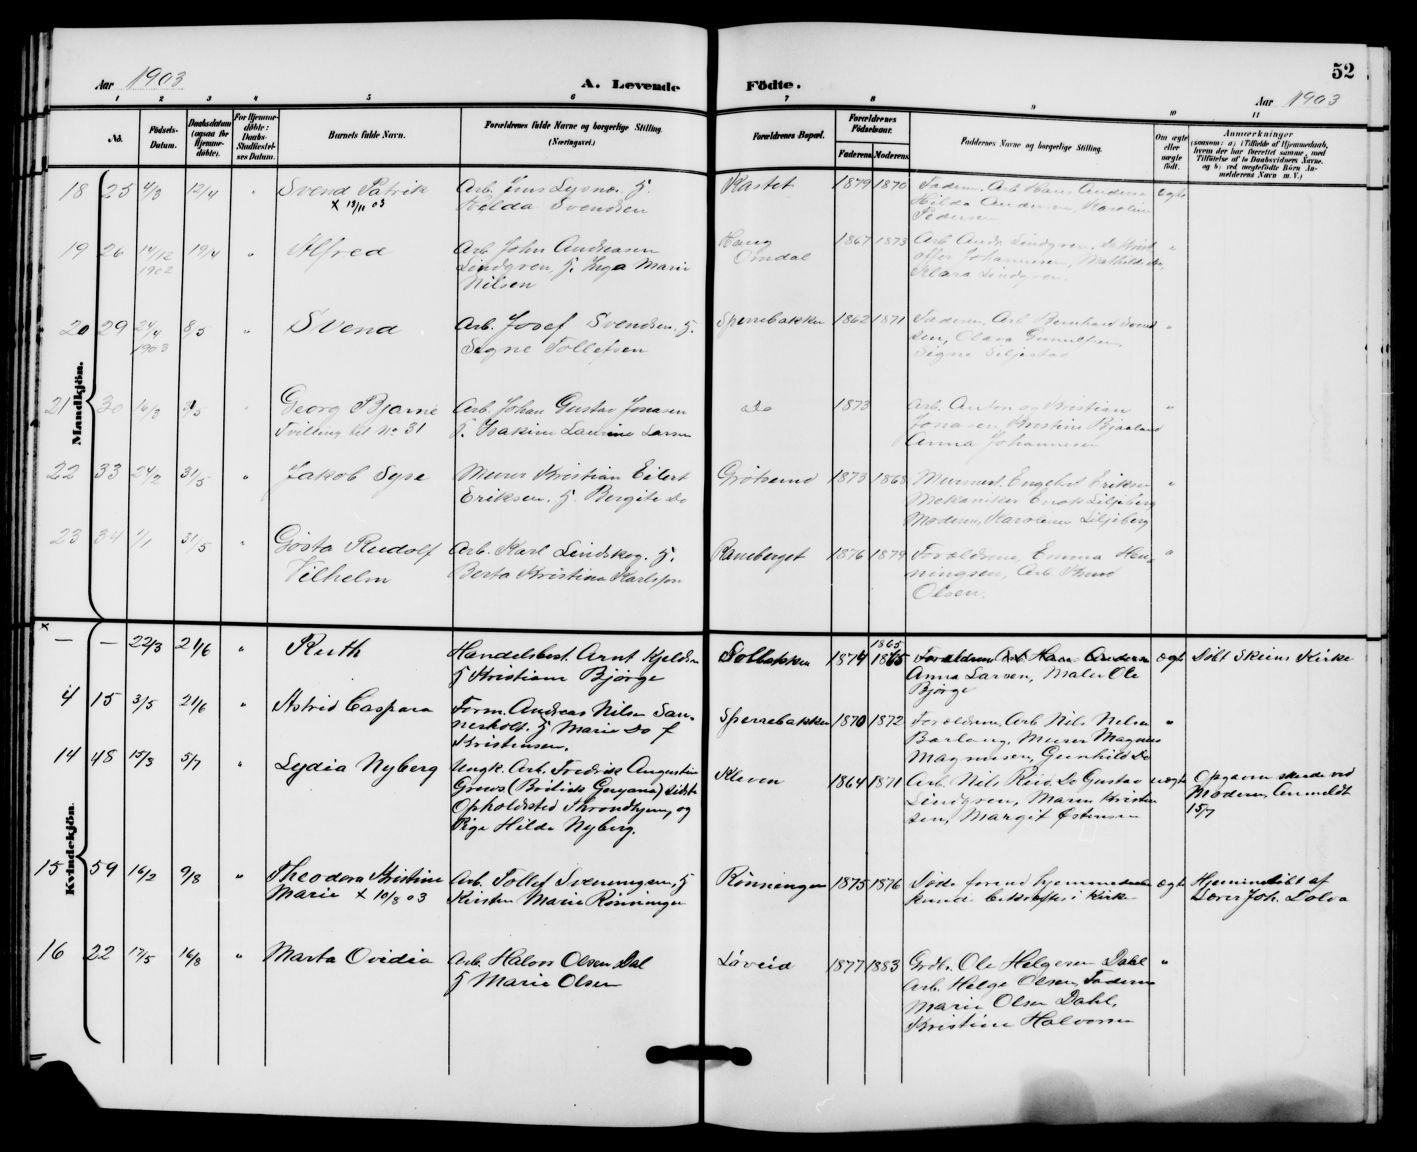 Aar 1903
A. Levende
Födte.
52
Aar 1903
1 2 3 4 5 6 7 8 9 10 11
No.
Födsels-
Datum.
Daabsdatum
(ogsaa for
Hjemme-
döbte).
For Hjemme-
döbte:
Daabs-
Stadfæstel-
ses Datum.
Barnets fulde Navn.
Forældrenes fulde Navne og borgerlige Stilling.
(Næringsvei.)
Forældrenes Bopæl.
Forældrenes
Födselsaar.
Faderens Moderens
Faddernes Navne og borgerlige Stilling.
Om ægte
eller
uægte
født.
Anmerkninger
Mandkjön.
18 25 4/3 12/4 " Svend Patrik
x 13/11 03
Arb. Jens Lysnes. H.
Hilda Svendsen
Kastet 1879 1870
Faderen, Arb Hans Andersen
Hilda Andersen, Karoline
Pedersen
ægte
19 26 14/12 1902 19/4 " Alfred
Arb John Andreasen
Lindgren, H. Inga Marie
Nilsen
Haug
Omdal
1867 1873
Arb. Andr. Lindgren, Do Krist
offer Johannesen, Mathilde Do,
Klara Lindgren.
"
20 29 24/4 1903 8/5 " Svend
Arb. Josef Svendsen, H.
Signe Tollefsen
Sperrebakken 1862 1871
Faderen, Arb Bernhard Svend
sen, Clara Gunulfsen,
Signe Siljestad
"
21 30 16/3 8/5 " Georg Bjarne
Tvilling til No 31
Arb. Johan Gustav Jonasen
H. Isakine Laurine Larsen
Do 1873
Arb. Anton og Kristian
Jonasen Kristine Bjaaland
Anna Johannesen
"
22 33 24/2 31/5 " Jakob Syse
Murer Kristian Eilert
Eriksen. H. Bergite Do
Grötsund 1873 1868
Murmest. Engebret Eriksen
Mekaniker Enok Liljeberg
Moderen, Karoline Liljeberg
"
23 34 1/1 31/5 " Gösta Rudolf
Vilhelm
Arb. Karl Lindskog. H.
Berta Kristina Karlsson
Raneberget 1876 1879
Forældrene, Emma Hen-
ningsen, Arb. Knud
Olsen.
"
x
— — 22/3 21/6 " Ruth
Handelsbest. Arnt Kjeldsen
H Kristiane Bjørge
Solbakken 1874 1865
Forældrene Arb Hans Andersen
Anna Larsen, Maler Ole
Bjørge
ægte
Döbt Skiens Kirke
Kvindekjön.
4 15 3/5 21/6 " Astrid Caspara
Form. Andreas Nilsen San-
nesholt. H Marie Do f
Kristensen.
Sperrebakken 1870 1872
Forældrene, Arb Nils Nelsen
Barlaug, Murer Magnus
Magnusen, Gunhild Do
"
14 48 15/3 5/7 " Lydia Nyberg
Ungk. Arb. Fredrik Augustin
Grews (Britisk Guyana) sidste
Opholdssted Throndhjem, og
Pige Hilda Nyberg.
Kleven 1864 1871
Arb. Nils Riis Do Gustav
Lindgren, Maren Kristen
sen, Margit Østensen
uægte
Opgaven skede ved
Moderen, Anmeldt
15/7
15 59 16/2 9/8 " Theodora Kristine
Marie x 10/8 03
Arb. Tollef Sveningsen, H
Kirsten Marie Rönningen
Rönningen 1875 1876
Döde forend hjemmedaaben
kunde bekræftes i Kirken
ægte
Hjemmedöbt af
Lærer Joh. Dolva
16 22 17/5 16/8 " Marta Ovidia
Arb. Halvor Olsen Dal
H Marie Olsen
Löveid 1877 1883
Grdb. Ole Helgesen Dahl
Arb. Helge Olsen, Faderen
Marie Olsen Dahl,
Kristine Halvorsen
"